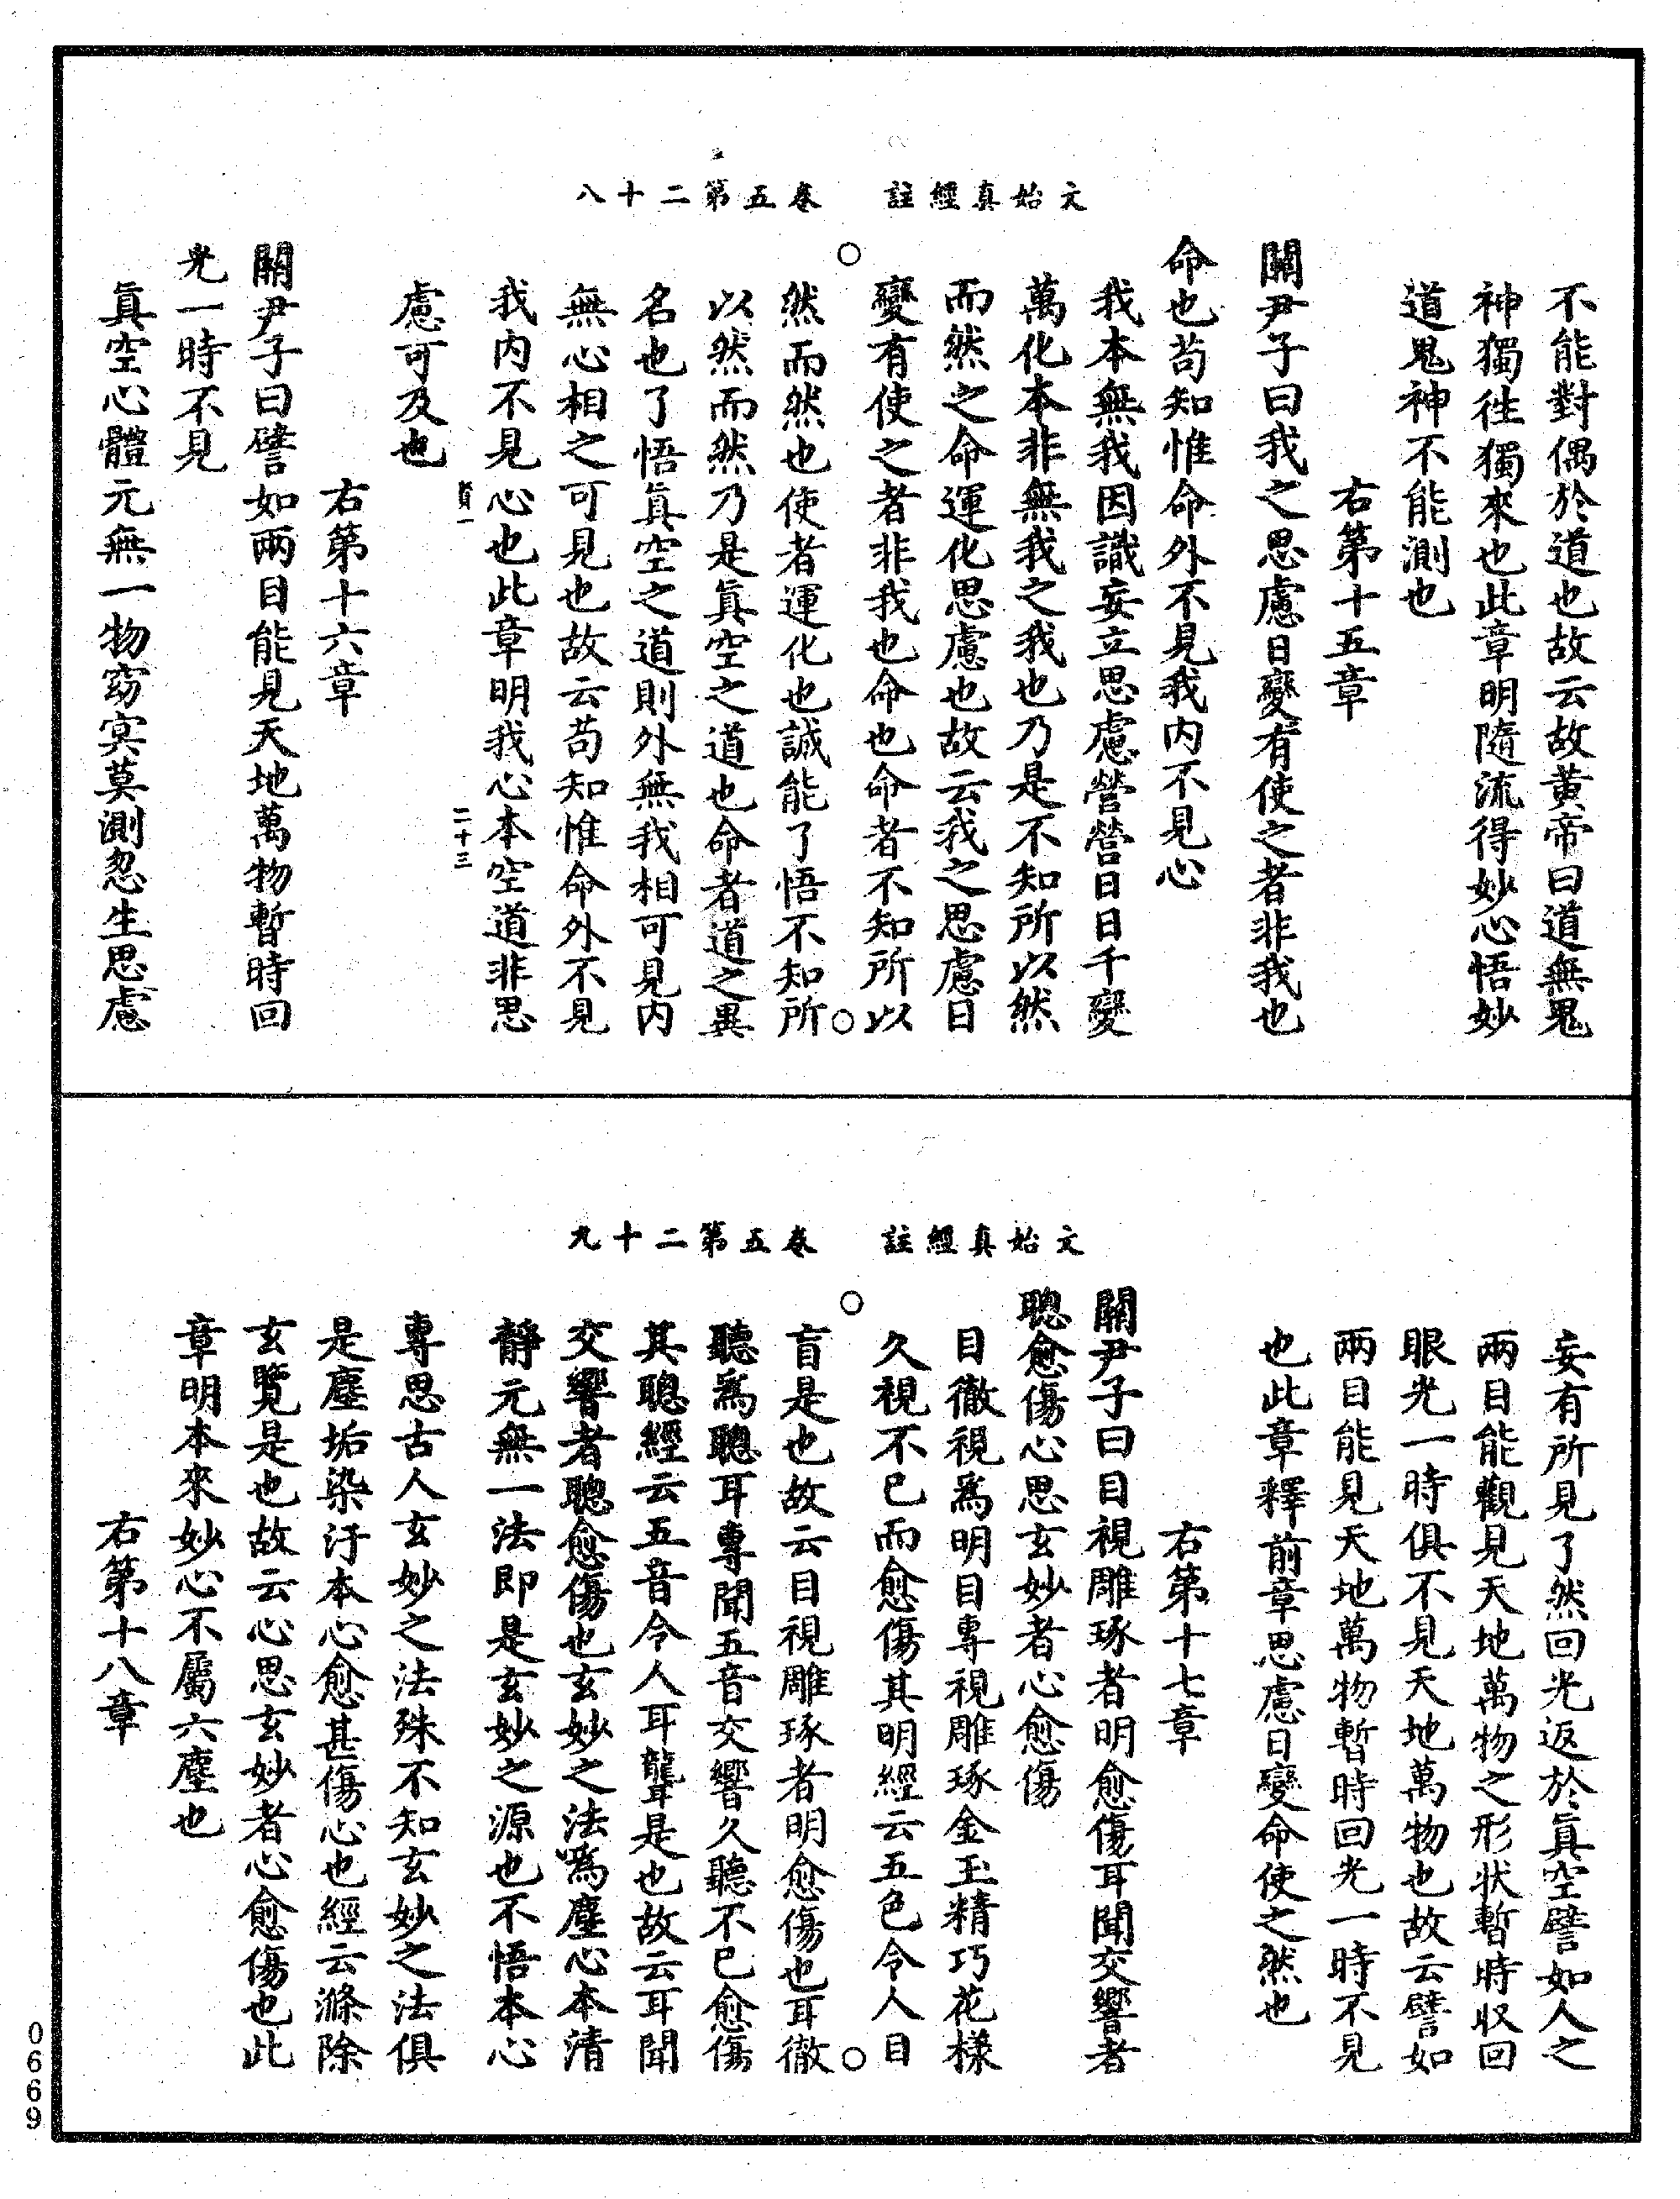 文始真經註　卷五第二十八
不能對偶於道也故云故黃帝曰道無鬼
神獨往獨來也此章明隨流得妙心悟妙
道鬼神不能測也
右第十五章
關尹子曰我之思慮日變有使之者非我也
命也苟知惟命外不見我內不見心
我本無我因識妄立思慮營營日日千變
萬化本非無我之我也乃是不知所以然
而然之命運化思慮也故云我之思慮日
變有使之者非我也命也命者不知所以
然而然也使者運化也誠能了悟不知所
以然而然乃是眞空之道也命者道之異
名也了悟眞空之道則外無我相可見內
無心相之可見也故云苟知惟命外不見
我內不見心也此章明我心本空道非思
二十三
慮可及也
右第十六章
關尹子曰譬如兩目能見天地萬物暫時回
光一時不見
眞空心體元無一物窈冥莫測忽生思慮
文始真經註　卷五第二十九
妄有所見了然回光返於眞空譬如人之
兩目能觀見天地萬物之形狀暫時収回
眼光一時俱不見天地萬物也故云譬如
兩目能見天地萬物暫時回光一時不見
也此章釋前章思慮日變命使之然也
右第十七章
關尹子曰目視雕琢者明愈傷耳聞交響者
聰愈傷心思玄妙者心愈傷
目徹視爲明目專視雕琢金玉精巧花樣
久視不已而愈傷其明經云五色令人目
盲是也故云目視雕琢者明愈傷也耳徹
聽爲聰耳專聞五音交響久聽不已愈傷
其聰經云五音令人耳聾是也故云耳聞
交響者聰愈傷也玄妙之法爲塵心本清
靜元無一法即是玄妙之源也不悟本心
專思古人玄妙之法殊不知玄妙之法俱
是塵垢染汙本心愈甚傷心也經云滌除
玄覽是也故云心思玄妙者心愈傷也此
章明本來妙心不屬六塵也
右第十八章
0669